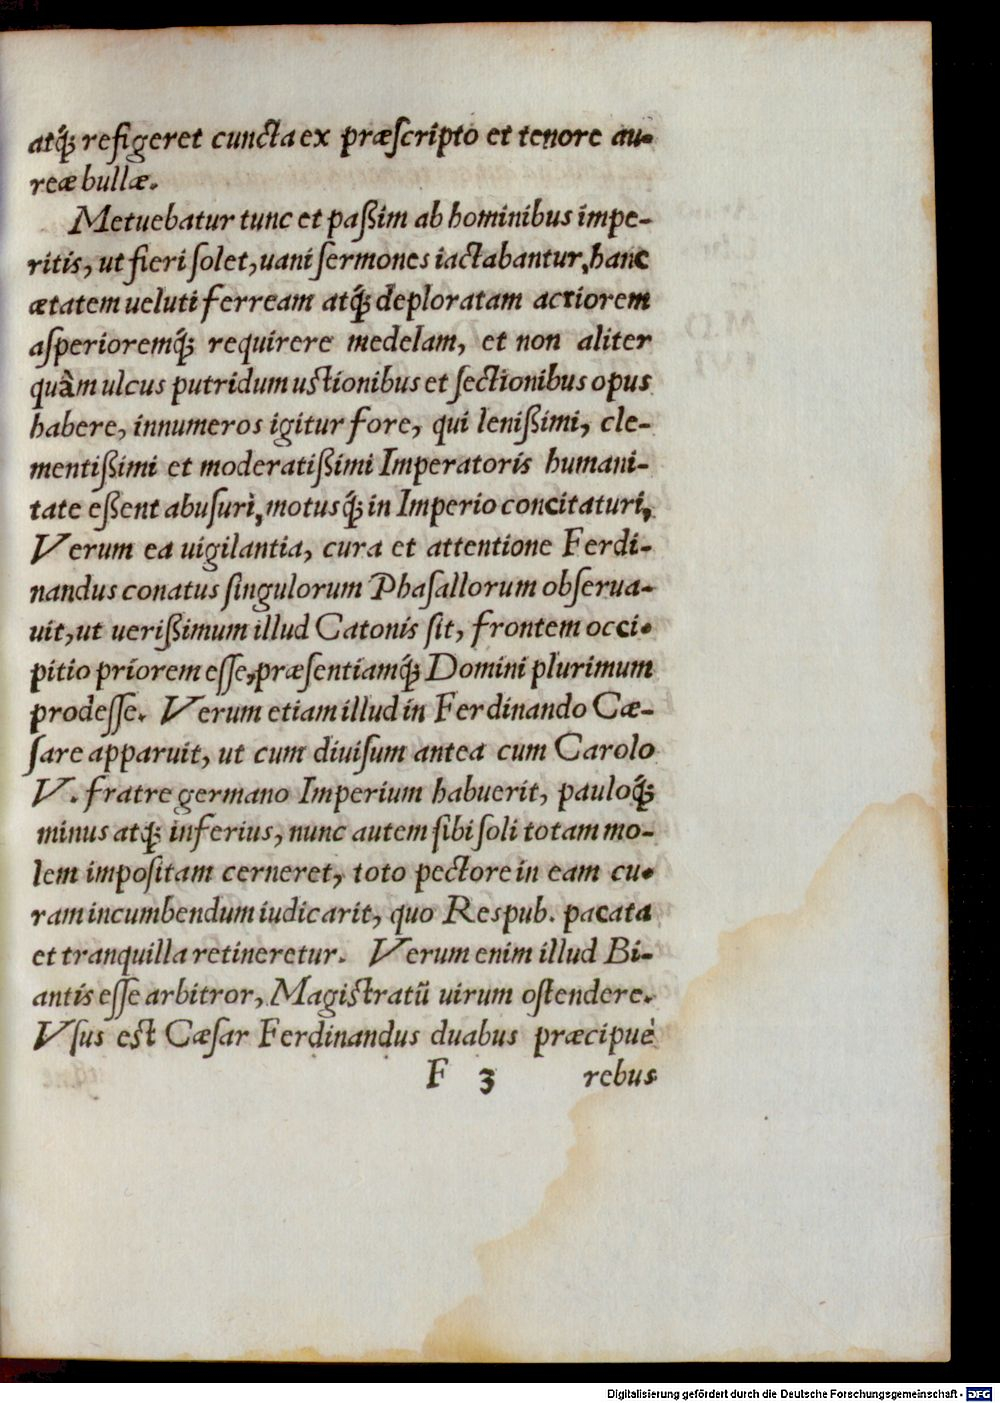 atq́; refigeret cuncta ex præſcripto et tenore au-
reæ bullæ.
Metuebatur tunc et paßim ab hominibus impe-
ritis, ut fieri ſolet, uani ſermones iactabantur, hanc
ætatem ueluti ferream atq́; deploratam acriorem
aſperioremq́; requirere medelam, et non aliter
quâm ulcus putridum uſtionibus et ſectionibus opus
habere, innumeros igitur fore, qui lenißimi, cle-
mentißimi et moderatißimi Imperatoris humani-
tate eßent abuſuri, motusq́; in Imperio concitaturi,
Verum ea uigilantia, cura et attentione Ferdi-
nandus conatus ſingulorum Phaſallorum obſerua-
uit, ut uerißimum illud Catonis ſit, frontem occi-
pitio priorem eſſe, præſentiamq́; Domini plurimum
prodeſſe. Verum etiam illud in Ferdinando Cæ-
ſare apparuit, ut cum diuiſum antea cum Carolo
V. fratre germano Imperium habuerit, pauloq́;
minus atq́; inferius, nunc autem ſibi ſoli totam mo-
lem impoſitam cerneret, toto pectore in eam cu-
ram incumbendum iudicarit, quo Respub. pacata
et tranquilla retineretur. Verum enim illud Bi-
antis eſſe arbitror, Magiſtratū uirum oſtendere.
Vſus eſt Cæſar Ferdinandus duabus præcipuè
F 3 rebus
Digitalisierung gefördert durch die Deutsche Forschungsgemeinschaft - DFG